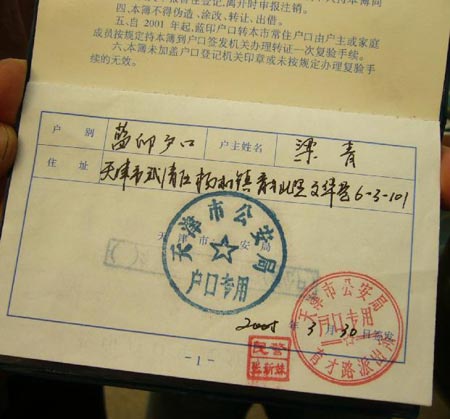 四、本簿不得伪造、涂改、转让、出借。
五、自2001年起,蓝印户口转本市常住户口由户主或家庭
成员按规定持本簿到户口签发机关办理转证一次复验手续。
六、本簿未加盖户口登记机关印章或未按规定办理复验手
续的无效。
户 别 蓝印户口 户主姓名 梁青
住 址 天津市武清区杨村镇 6-3-101
天津市公安局
户口专用
天津市公安局
天津市公安局
户口专用
育才路派出所
2005年3月30日签发
民警
-1-